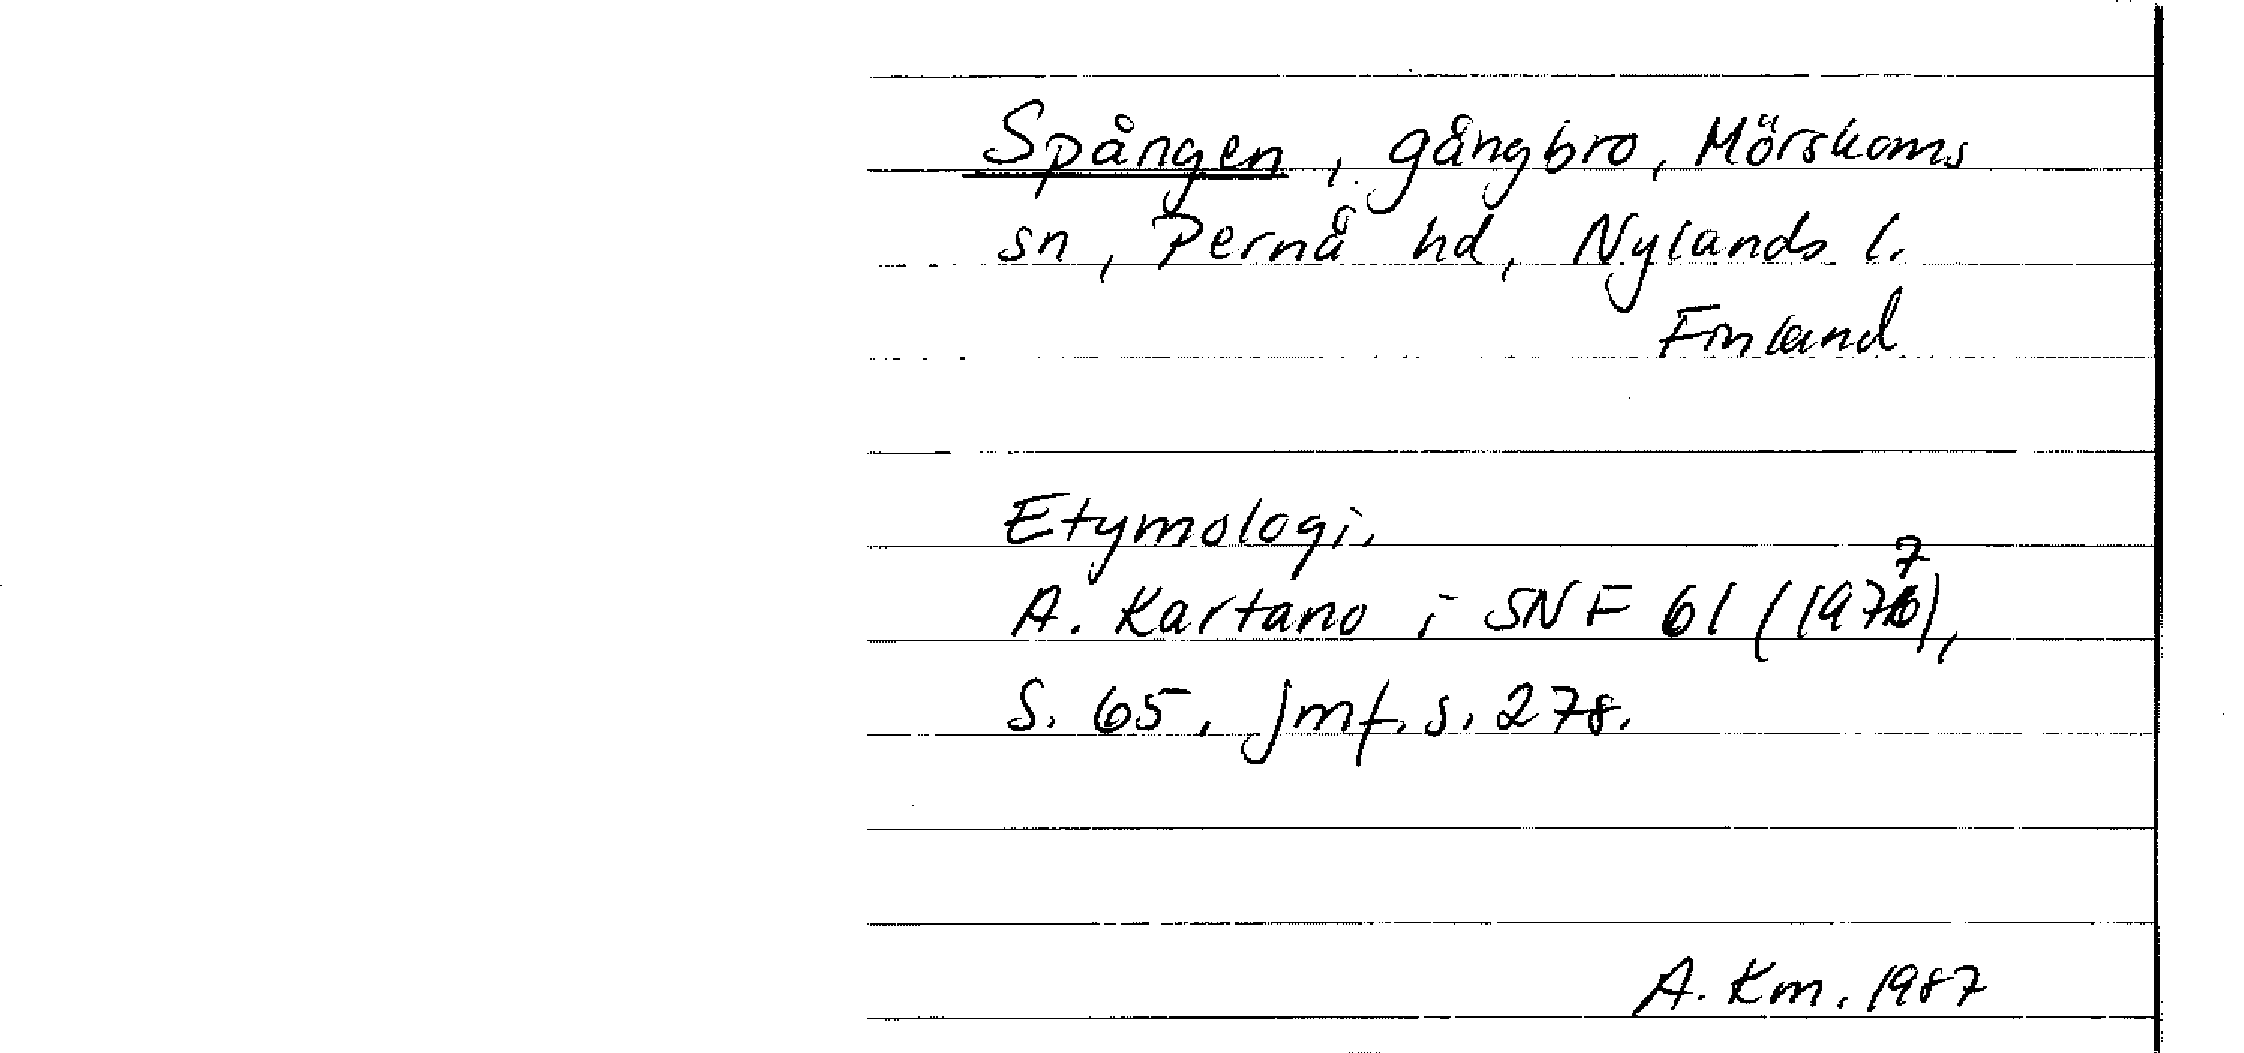 Spången, gångbro, Mörskoms
sn, Pernå hd, Nylands l.
Finland
Etymologi.
A. Kartano i SNF 61 (1977),
S. 65, jmf. s. 278.
A. Km. 1987